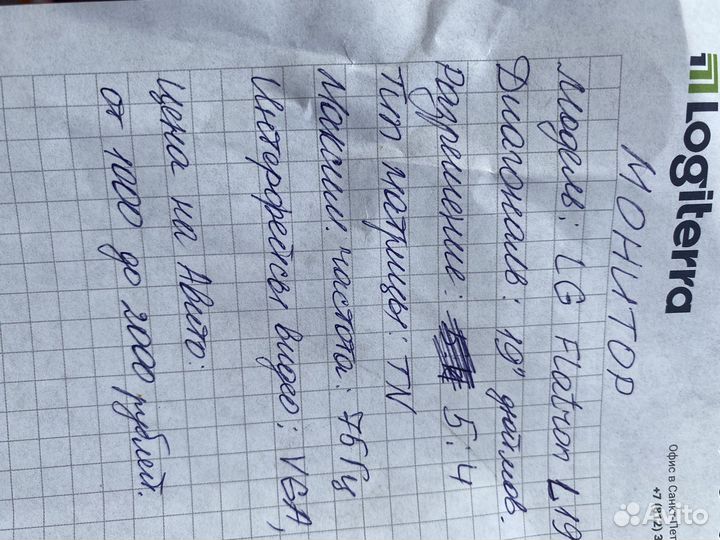 Logiterra
Офис в Санкт-Пет
+7 (812) 3
МОНИТОР
Модель: LG Flatron L19
Диагональ: 19" дюймов.
Разрешение: 5:4
Тип матрицы: TN
Максим. частота: 75 Гц
Интерфейсы видео: VGA,
Цена на Авито:
от 1000 до 2000 рублей.
Avito